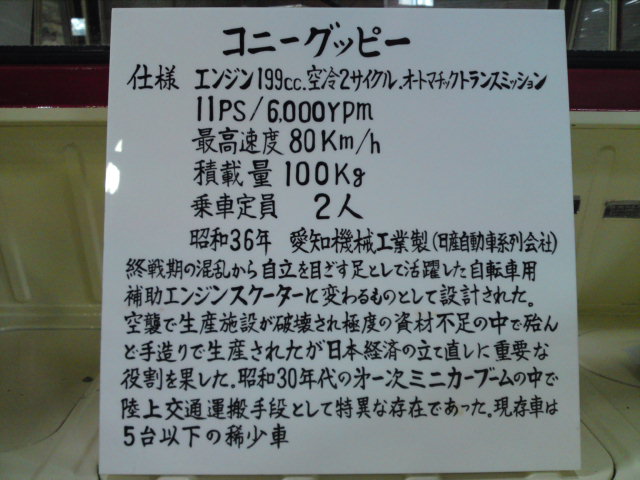 コニーグッピー
仕様 エンジン199cc.空冷2サイクル.オートマチックトランスミッション
11PS/6,000rpm
最高速度 80Km/h
積載量 100Kg
乗車定員 2人
昭和36年 愛知機械工業製(日産自動車系列会社)
終戦期の混乱から自立を目ざす足として活躍した自転車用
補助エンジンスクーターに変わるものとして設計された。
空襲で生産施設が破壊され極度の資材不足の中で殆ん
ど手造りで生産されたが日本経済の立て直しに重要な
役割を果した.昭和30年代の第一次ミニカーブームの中で
陸上交通運搬手段として特異な存在であった。現存車は
5台以下の稀少車